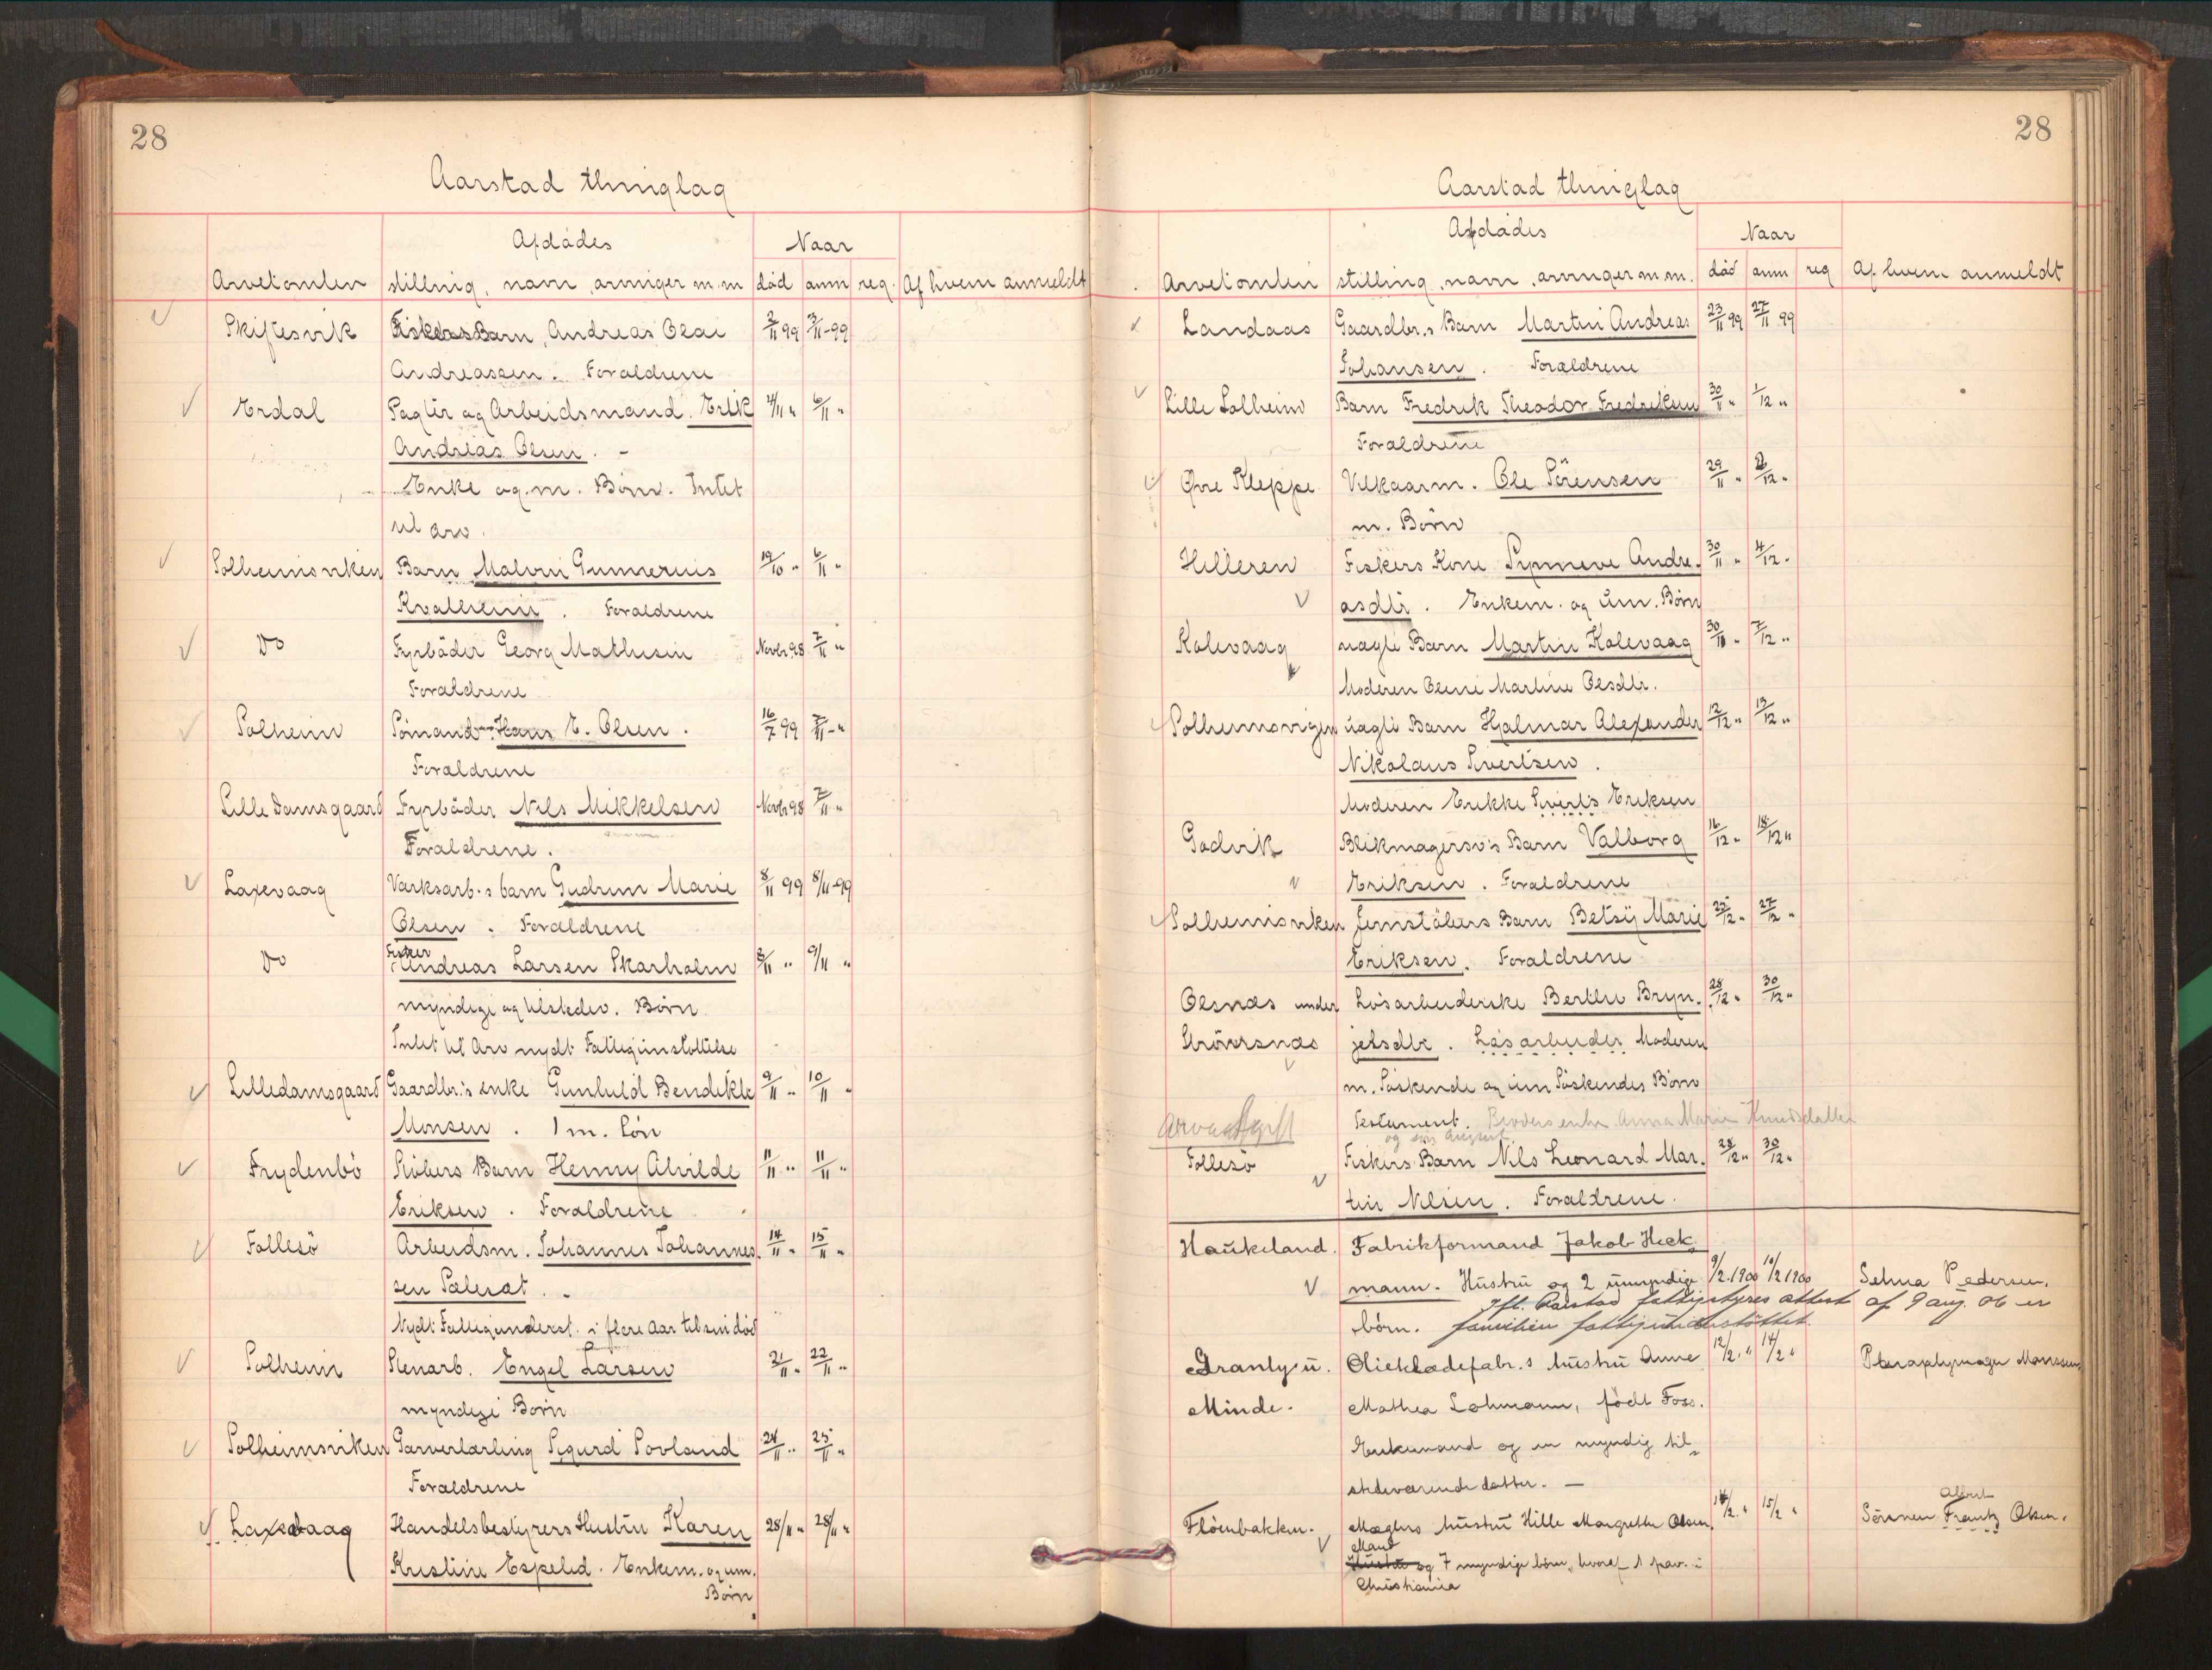 28
Aarstad thinglag
Afdödes
Naar
Arvetomten stilling, navn, arvinger m.m död anm reg. Af hvem anmeldt
Skiftesvik Fiskers Barn, Andreas Olai 2/11 99 3/11-99
Andreassen. Forældrene
Erdal og Arbeidsmand. Erik 4/11 " 6/11 "
Andreas Olsen. -
Enke og m. Börn. Intet
til arv.
Solheimsviken Barn Malvin Gunnerius 19/10 " 6/11 "
Kvalheim. Forældrene
Do Fyrböder Georg Mathisen Novbr 98 7/11 "
Forældrene
Solheim Sömand Hans E. Olsen. 16/7 99 7/11 - "
Forældrene
Lille Damsgaard Fyrböder Nils Mikkelsen Novbr 98 7/11 "
Forældrene.
Laxevaag Værksarb.s barn Gudrun Marie 8/11 99 8/11-99
Olsen. Forældrene
Fisker
Do Andreas Larsen Skarholm 8/11 " 9/11 "
myndige og tilstedev. Börn
Intet til Arv nydt Fattigunstöttelse
Lilledamsgaard Gaardbr.s enke Gunhild Bendikte 9/11 " 10/11 "
Monsen. 1 m. Sön
Frydenbö Stöbers Barn Henny Alvilde 11/11 " 11/11 "
Eriksen. Forældrene
Follesö Arbeidsm. Johannes Johannes- 14/11 " 15/11 "
sen Sælesæt. -
Nydt Fattigunderst. i flere Aar til sin död
Solheim Stenarb. Engel Larsen 21/11 " 22/11 "
myndige Börn
Solheimsviken Garverlærling Sigurd Sovland 24/11 " 25/11 "
Forældrene
Laxevaag Handelsbestyrers Hustru Karen 28/11 " 28/11 "
Kristine Espelid. Enkem. og um.
Börn
28
Aarstad thinglag
Afdödes
Naar
Arvetomten stilling, navn, arvinger m.m. död anm reg Af hvem anmeldt
Landaas Gaardbr.s Barn Martin Andreas 23/11 99 27/11 99
Johansen. Forældrene
Lille Solheim Barn Fredrik Theodor Fredriksen 30/11 " 1/12 "
Forældrene
Övre Kleppe Vilkaarm. Ole Sörensen 29/11 " 2/12 "
m. Börn
Hilleren Fiskers Kone Synneve Andre- 30/11 " 4/12 -
asdtr. Enkem. og um. Börn
Kolevaag uægte Barn Martin Kolevaag 30/10 " 7/12 "
Moderen Oline Martine Olsdtr.
Solheimsvigen uægte Barn Hjalmar Alexander 12/12 " 13/12 "
Nikolaus Sivertsen.
Moderen Erikke Siverts Eriksen
Godvik Blikmagersv.s Barn Valborg 16/12 " 18/12 "
Eriksen. Forældrene
Solheimsviken Jernstöbers Barn Betsy Marie 25/12 " 27/12 "
Eriksen. Forældrene
Olsnæs under Lösarbeiderske Berthe Bryn- 28/12 " 30/12 "
Strömsnæs jelsdtr. Lösarbeider Moderen
m. Söskende og um Söskendes Börn
Arveafgift Testament. Broders enke Anna Marie Knudsdatter
Follesö Fiskers Barn Nils Leonard Mar- 28/12 " 30/12 "
tin Nilsen. Forældrene.
Haukeland. Fabrikformand Jakob Heck-
mann. Hustru og 2 umyndige 9/2.1900 10/2 1900 Selma Pedersen.
jfl. Aarstad fattigstyres attest af 9 aug. 06 er
börn. familien fattigunderstöttet.
Granly u. Olieklædefabr.s hustru Anne 12/2. " 14/2 " Monssen.
Minde. Mathea Lohmann, födt Foss.
Enkemand og en myndig til-
stedeværende datter. —
Albert
Flöienbakken. Mæglers hustru Hille Margrethe Olsen. 14/2. " 15/2 " Sönnen Frantz Olsen.
Mand
Hustru og 7 myndige börn, hvoraf 1 frav. i
Christiania